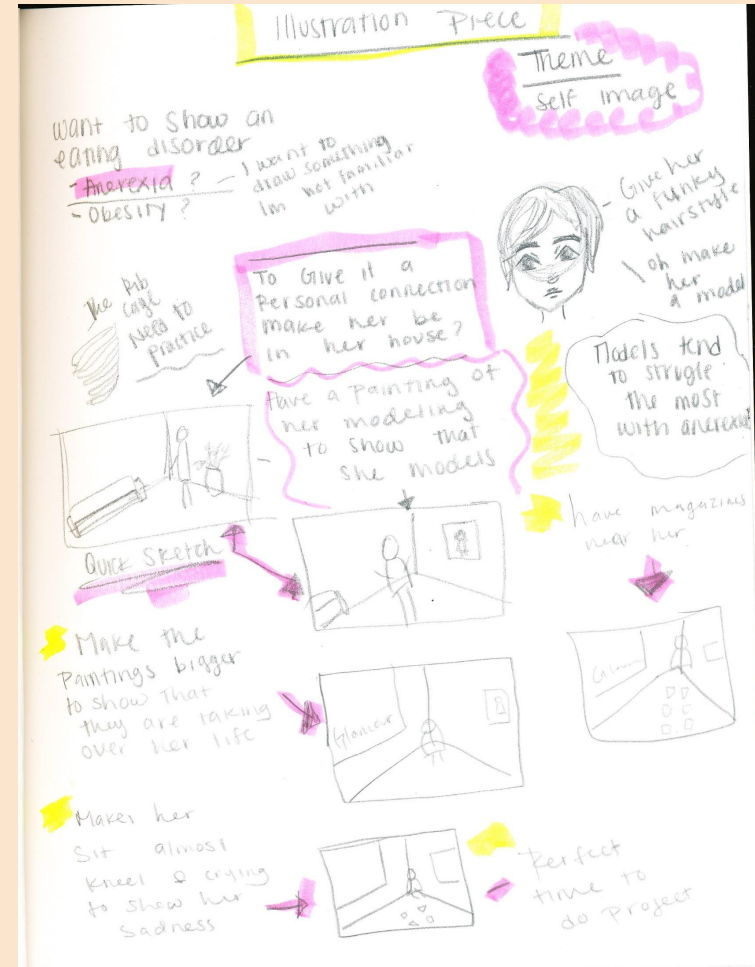 Illustration Piece
Theme
Self Image
Want to Show an
eating disorder
- Anerexia ?
- Obesity ?
- I want to
draw something
Im not familiar
with
- Give her
a funky
hairstyle
oh make
her
a model
The Rib
Cage
Need to
Practice
To Give it a
Personal connection
make her be
in her house?
Models tend
to strugle
the most
with anerexia
Have a Painting of
her modeling
to show that
she models
Quick Sketch
have magazines
near her
Make the
Paintings bigger
to show That
they are taking
over her life
Glamour
Make her
Sit almost
kneel & crying
to show her
Sadness
Perfect
time to
do Project